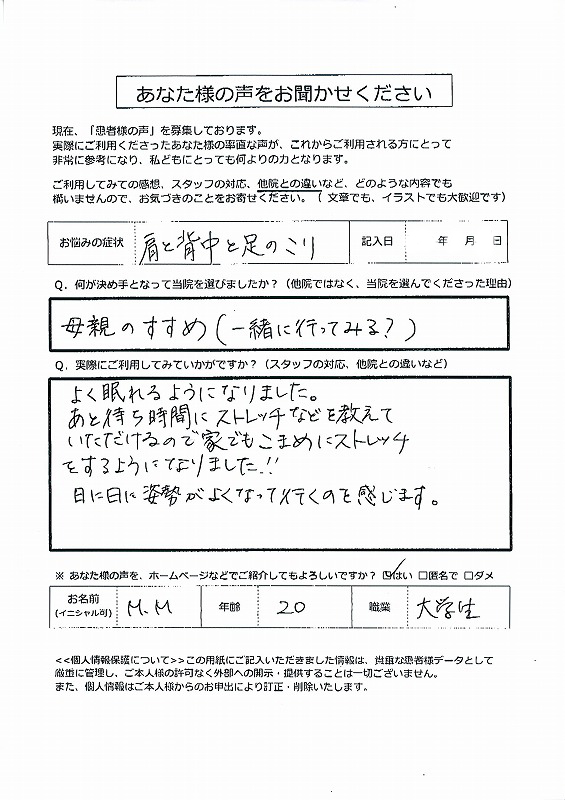 あなた様の声をお聞かせください
現在、「患者様の声」を募集しております。
実際にご利用くださったあなた様の率直な声が、これからご利用される方にとって
非常に参考になり、私どもにとっても何よりの力となります。
ご利用してみての感想、スタッフの対応、他院との違いなど、どのような内容でも
構いませんので、お気づきのことをお寄せください。（ 文章でも、イラストでも大歓迎です）
お悩みの症状 肩と背中と足のこり 記入日 年 月 日
Q．何が決め手となって当院を選びましたか？（他院ではなく、当院を選んでくださった理由）
母親のすすめ(一緒に行ってみる？)
Q．実際にご利用してみていかがですか？（スタッフの対応、他院との違いなど）
よく眠れるようになりました。
あと待ち時間にストレッチなどを教えて
いただけるので家でもこまめにストレッチ
をするようになりました!!
日に日に姿勢がよくなって行くのを感じます。
※ あなた様の声を、ホームページなどでご紹介してもよろしいですか？ ☑はい □匿名で □ダメ
お名前 M.M 年齢 20 職業 大学生
(イニシャル可)
<<個人情報保護について>>この用紙にご記入いただきました情報は、貴重な患者様データとして
厳重に管理し、ご本人様の許可なく外部への開示・提供することは一切ございません。
また、個人情報はご本人様からのお申出により訂正・削除いたします。